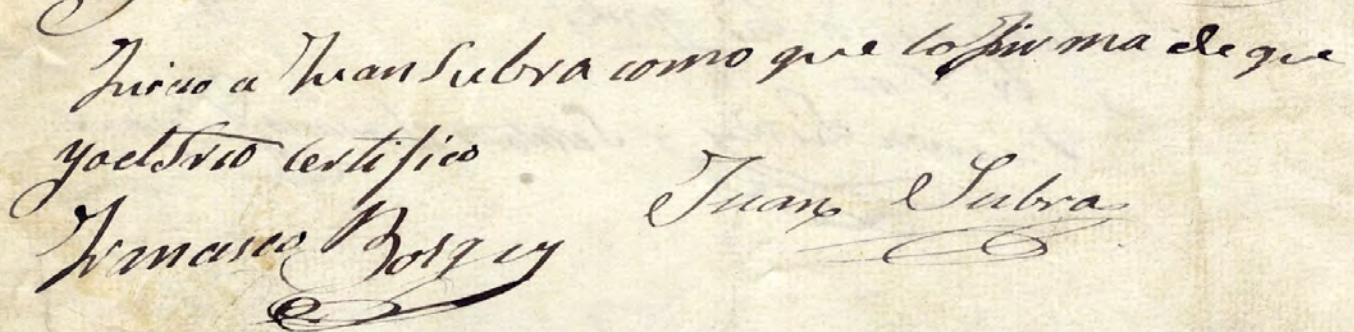 a Juan Subra como que lo firma de que
yo el Srio certifico
Juan Subra
Francisco Bosque